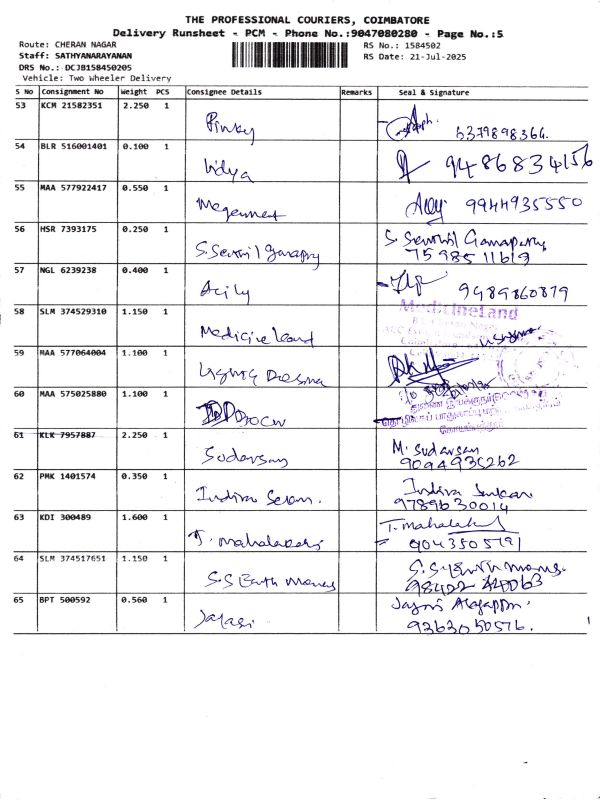 THE PROFESSIONAL COURIERS, COIMBATORE
Delivery Runsheet - PCM - Phone No.:9047080280 - Page No.:5
Route: CHERAN NAGAR RS No.: 1584502
Staff: SATHYANARAYANAN RS Date: 21-Jul-2025
DRS No.: DCJB158450205
Vehicle: Two Wheeler Delivery
S No Consignment No Weight PCS Consignee Details Remarks Seal & Signature
53 KCM 21582351 2.250 1 Pinky 6379898366.
54 BLR 516001401 0.100 1 Vidya 9486834156
55 MAA 577922417 0.550 1 9944935550
56 HSR 7393175 0.250 1 S. Senthil Ganapathy
7598511619
57 NGL 6239238 0.400 1 9489860879
58 SLM 374529310 1.150 1 Medicine Land MedicineLand
59 MAA 577064004 1.100 1
60 MAA 575025880 1.100 1
61 KLK 7957887 2.250 1 Sudarsan M. Sudarsan
9094935262
62 PMK 1401574 0.350 1 Indira
9789630014
63 KDI 300489 1.600 1 T. mahalakshmi T. mahalakshmi
9043505791
64 SLM 374517651 1.150 1 S.S Earth Movers
65 BPT 500592 0.560 1
9363050576.